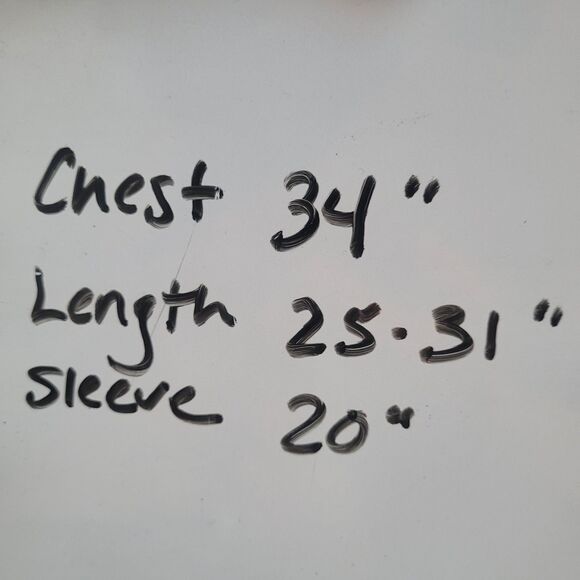 Chest 34"
Length 25-31"
Sleeve 20"